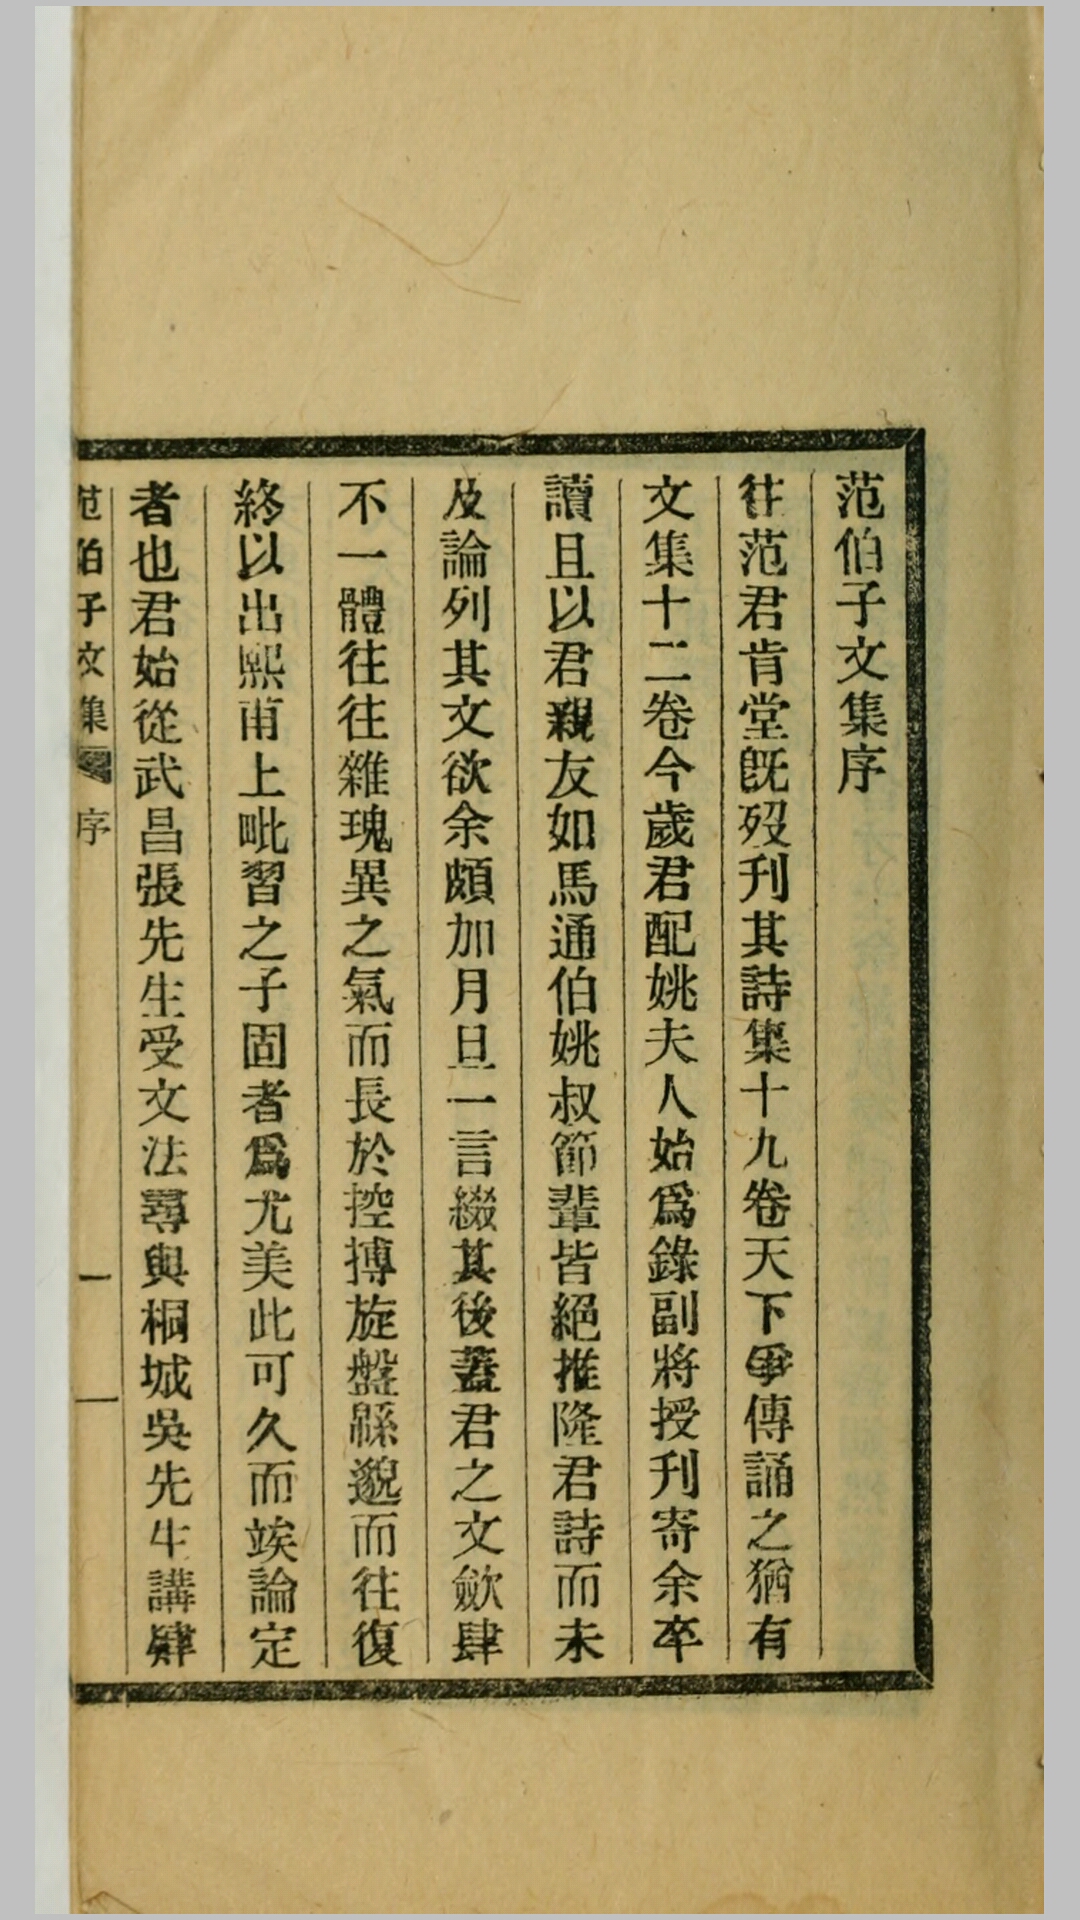 范伯子文集序
往范君肯堂旣歿刊其詩集十九卷天下爭傳誦之猶有
文集十二卷今歲君配姚夫人始爲錄副將授刊寄余卒
讀且以君親友如馬通伯姚叔節輩皆絕推隆君詩而未
及論列其文欲余頗加月旦一言綴其後蓋君之文斂肆
不一體往往雜瑰異之氣而長於控摶旋盤緜邈而往復
終以出熙甫上毗習之子固者爲尤美此可久而竢論定
者也君始從武昌張先生受文法尋與桐城吳先生講肄
范伯子文集 序 一